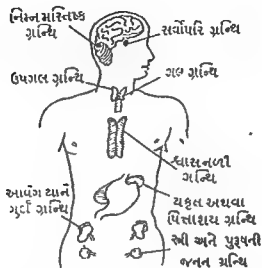 નિમ્નમસ્તિષ્ક
ગ્રંથિ
સર્વોપરિ ગ્રન્થિ
ઉપગલ ગ્રન્થિ
ગળ ગ્રંથિ
શ્વાસનળી
ગ્રન્થિ
આવંગ યાને
ગુર્દા ગ્રંથિ
યકૃત અથવા
પિત્તાશય ગ્રંથિ
સ્ત્રી અને પુરૂષની
જનન ગ્રંથિ